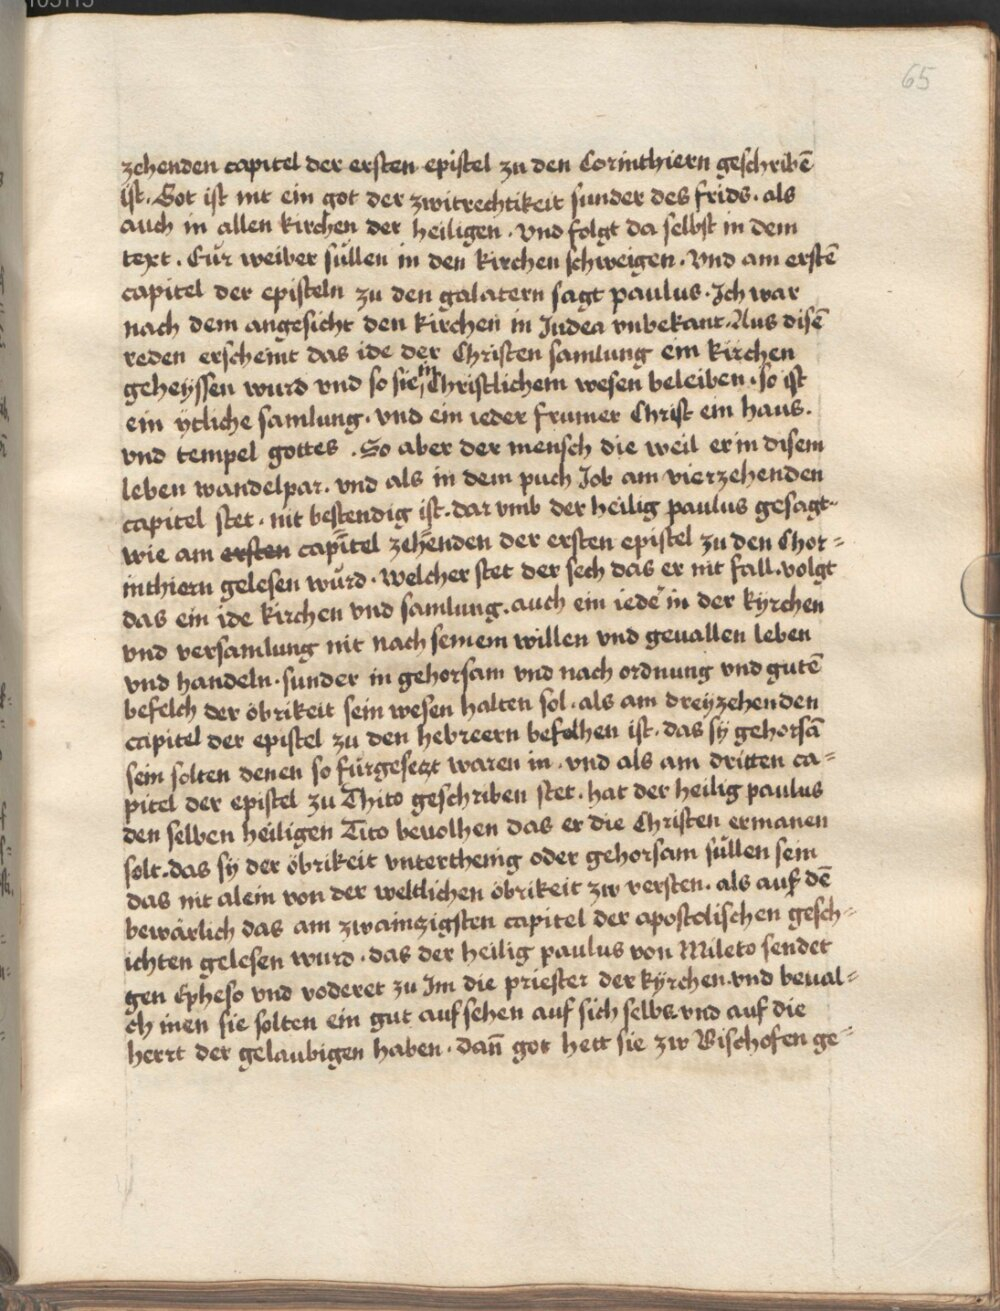 65
zehenden capitel der ersten epistel zu den Corinthiern geschribē
ist. Got ist nit ein got der zwitrechtikeit sunder des frids. als
auch in allen kirchen der heiligen. vnd folgt da selbst in dem
text. Eür weiber süllen in den kirchen schweigen. Vnd am erstē
capitel der episteln zu den galatern sagt paulus. Ich war
nach dem angesicht den kirchen in Judea vnbekant. Aus disē
reden erscheint das ide der Christen samlung ein kirchen
geheyssen wurd vnd so sie in Christlichem wesen beleiben. so ist
ein ytliche samlung. vnd ein ieder frumer Christ ein haus.
vnd tempel gottes. So aber der mensch die weil er in disem
leben wandelpar. vnd als in dem puch Job am vierzehenden
capitel stet. nit bestendig ist. dar vmb der heilig paulus gesagt
wie am ersten capitel zehenden der ersten epistel zu den Chor=
inthiern gelesen würd. welcher stet der sech das er nit fall. volgt
das ein ide kirchen vnd samlung. auch ein iedē in der kyrchen
vnd versamlung nit nach seinem willen vnd geuallen leben
vnd handeln. sunder in gehorsam vnd nach ordnung vnd gutē
befelch der öbrikeit sein wesen halten sol. als am dreyzehenden
capitel der epistel zu den hebreern befolhen ist. das sy gehorsā
sein solten denen so fürgesezt waren in. vnd als am dritten ca=
pitel der epistel zu Thito geschriben stet. hat der heilig paulus
den selben heiligen Tito beuolhen das er die Christen ermanen
solt. das sy der öbrikeit vnterthenig oder gehorsam süllen sein
das nit alein von der weltlichen öbrikeit zw versten. als auf dē
bewärlich das am zwainzigsten capitel der apostolischen gesch=
ichten gelesen wurd. das der heilig paulus von Mileto sendet
gen Epheso vnd voderet zu Im die priester der kyrchen. vnd beual=
ch inen sie solten ein gut auf sehen auf sich selbs. vnd auf die
herrt der gelaubigen haben. dañ got hett sie zw Bischofen ge=